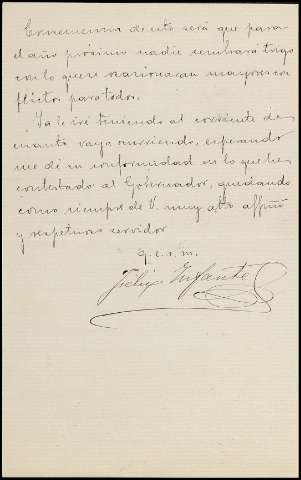 Consecuencia de esto será que para
el año próximo nadie sembrará trigo
con lo que se ocasionaran mayores con
flictos para todos.
Ya le iré teniendo al corriente de
cuanto vaya ocurriendo, esperando
me dé su conformidad en lo que he
contestado al Gobernador, quedando
como siempre de V. muy atto affmo
y respetuoso servidor
q. e. s. m.
Felix Infante